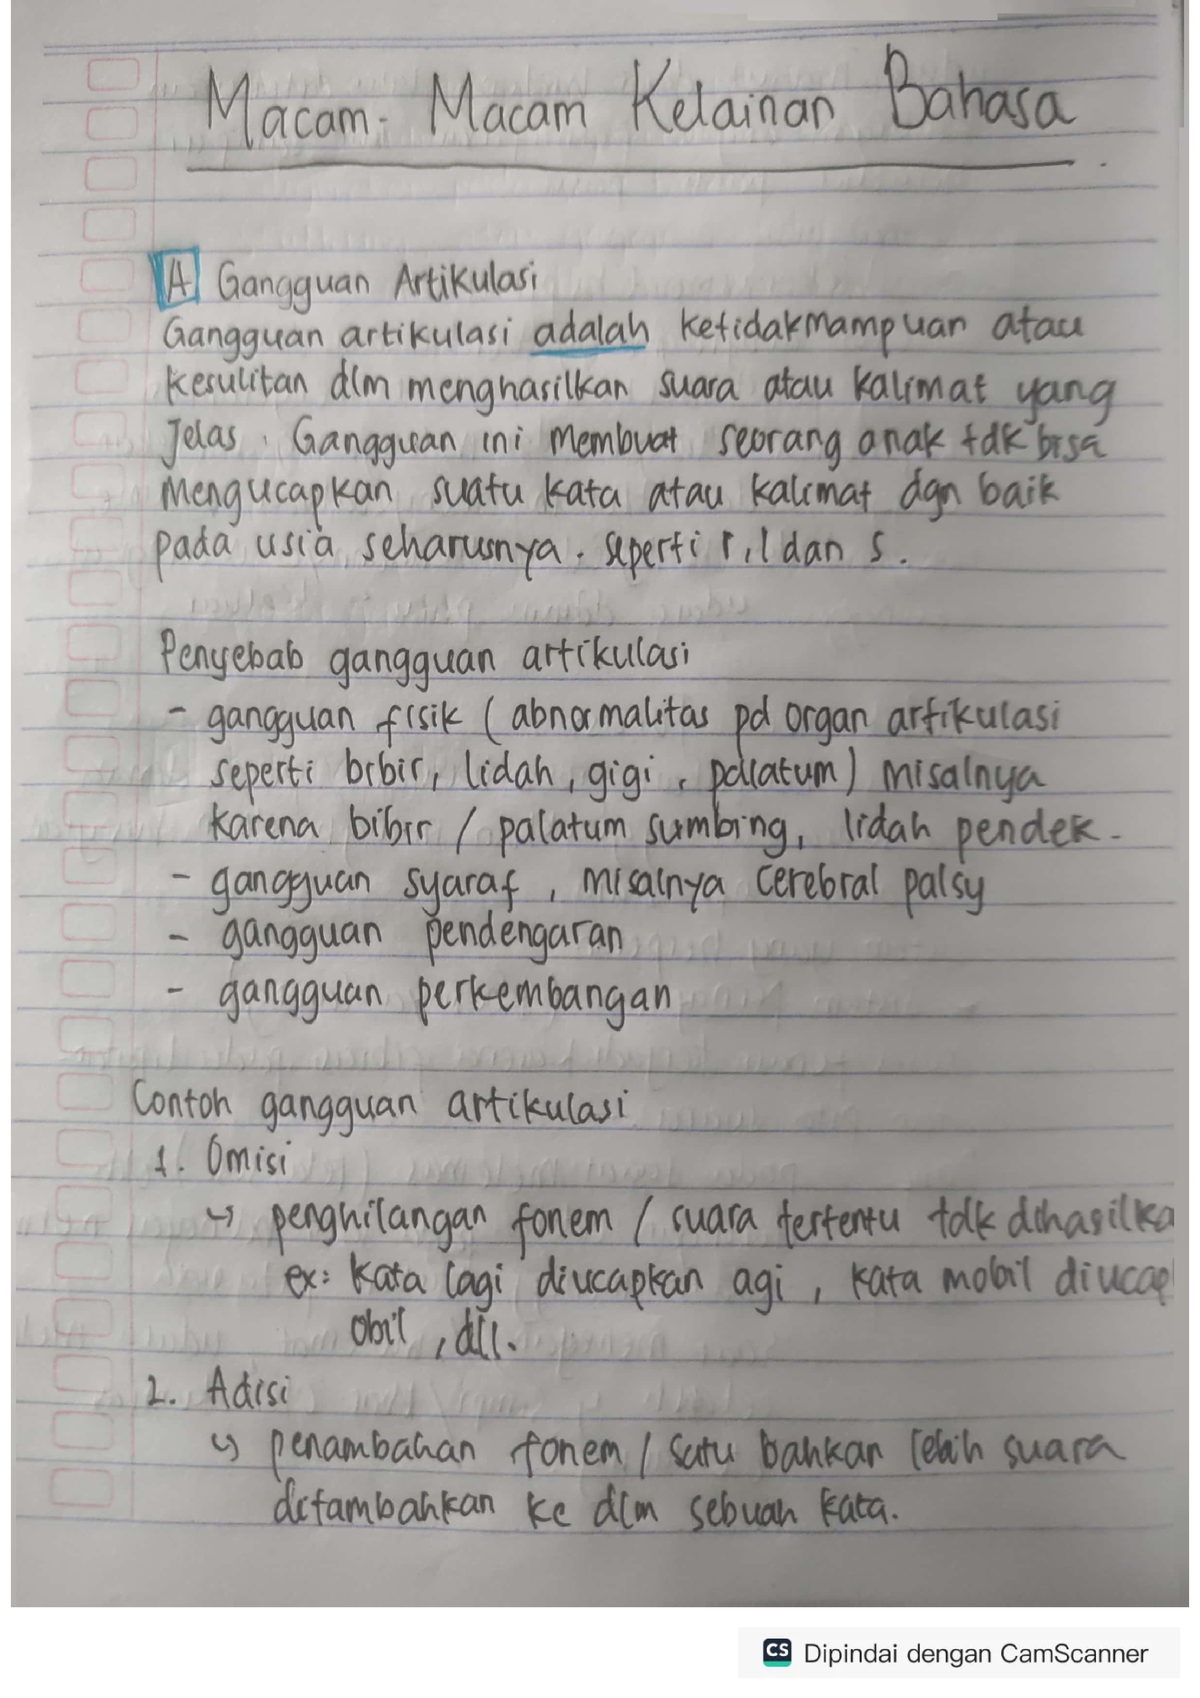 Macam-Macam Kelainan Bahasa
A Gangguan Artikulasi
Gangguan artikulasi adalah ketidakmampuan atau
kesulitan dlm menghasilkan suara atau kalimat yang
jelas. Gangguan ini membuat seorang anak tdk bisa
mengucapkan suatu kata atau kalimat dgn baik
pada usia seharusnya. seperti r, l dan s.
Penyebab gangguan artikulasi
- gangguan fisik (abnormalitas pd organ artikulasi
seperti bibir, lidah, gigi, pallatum) misalnya
karena bibir / palatum sumbing, lidah pendek.
- gangguan syaraf, misalnya cerebral palsy
- gangguan pendengaran
- gangguan perkembangan
Contoh gangguan artikulasi
1. Omisi
↳ penghilangan fonem / suara tertentu tdk dihasilka
ex: kata lagi diucapkan agi, kata mobil diucap
obil, dll.
2. Adisi
↳ penambahan fonem / satu bahkan lebih suara
ditambahkan ke dlm sebuah kata.
CS Dipindai dengan CamScanner